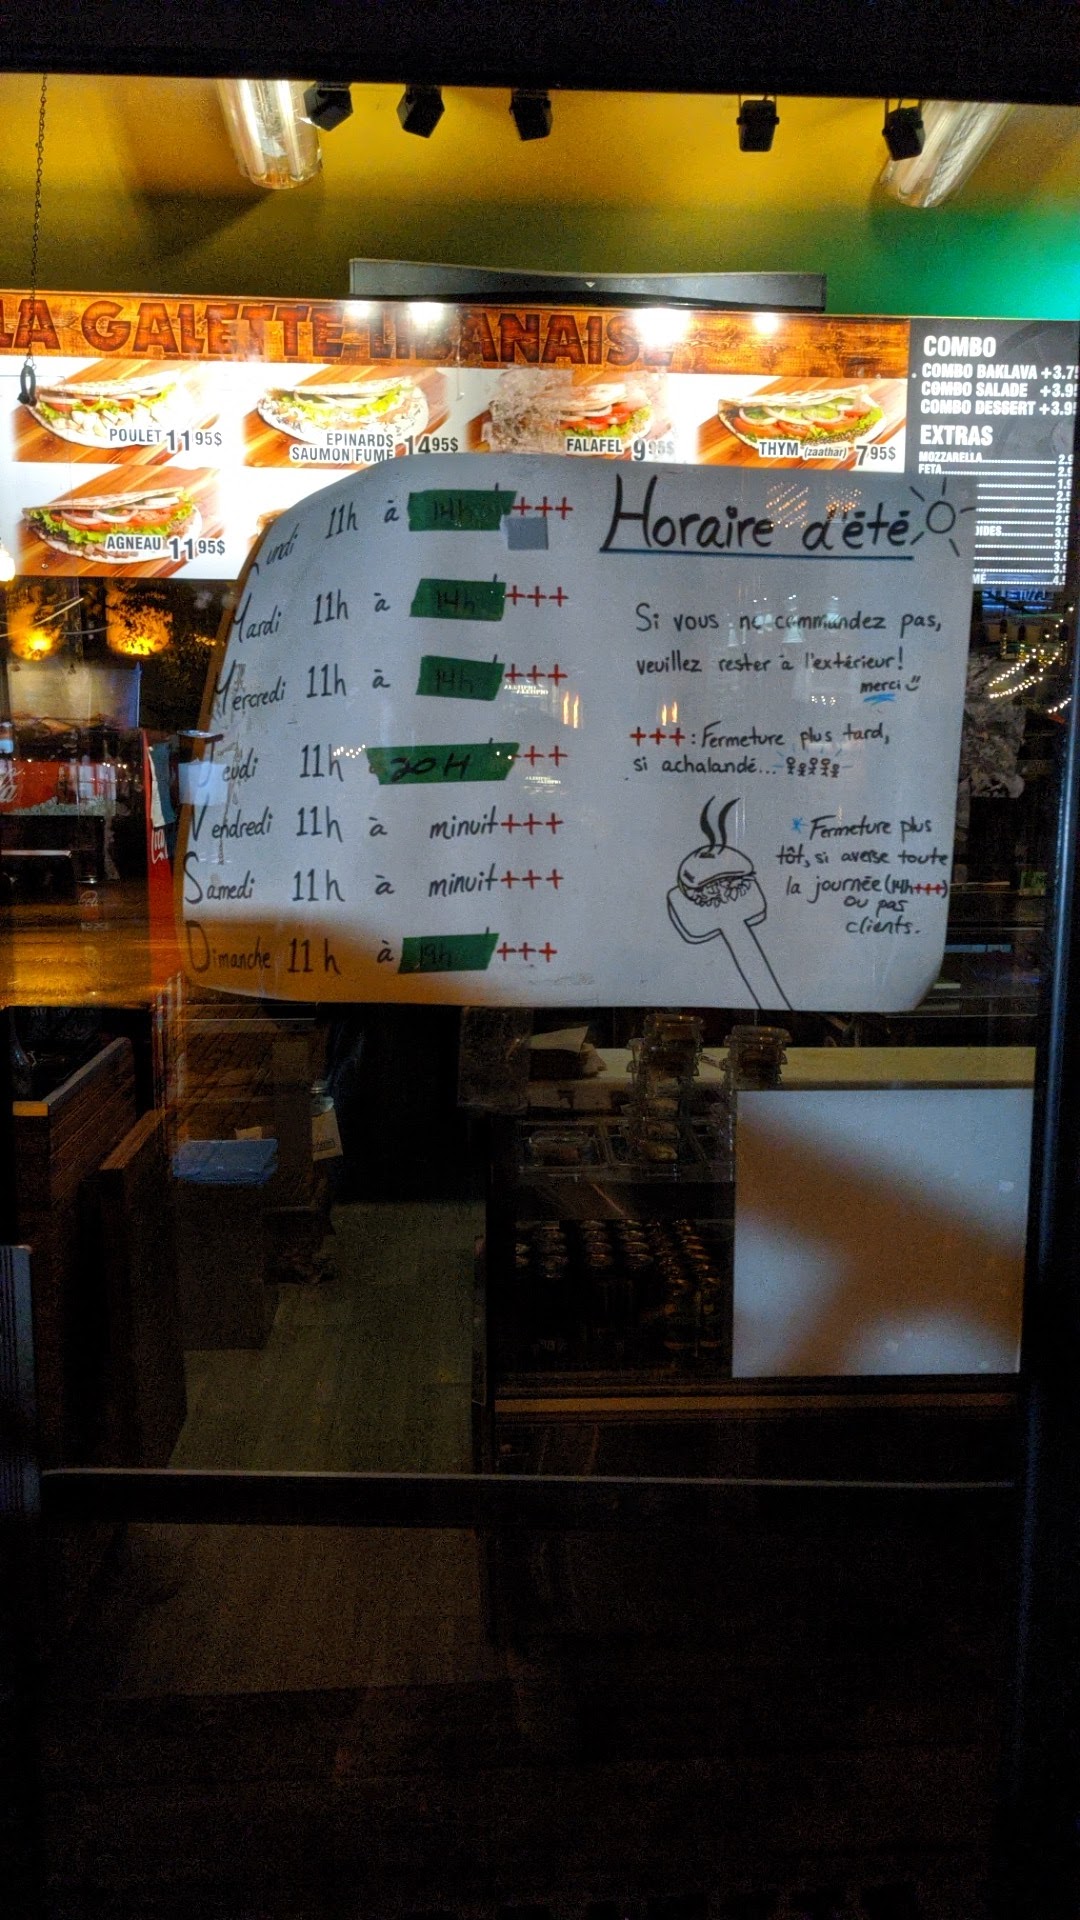 LA GALETTE LIBANAISE
POULET 11 95$
EPINARDS
SAUMON FUMÉ 14 95$
FALAFEL 9 95$
THYM (zaathar) 7 95$
AGNEAU 11 95$
COMBO
COMBO BAKLAVA +3.75
COMBO SALADE +3.9
COMBO DESSERT +3.9
EXTRAS
MOZZARELLA
FETA
Horaire d'été
Lundi 11h à 14h +++
Mardi 11h à 14h +++
Mercredi 11h à 14h +++
Jeudi 11h 20H ++
Vendredi 11h à minuit+++
Samedi 11h à minuit+++
Dimanche 11h à 19h +++
Si vous ne commandez pas,
veuillez rester à l'extérieur!
merci
+++: Fermeture plus tard,
si achalandé...
*Fermeture plus
tôt, si averse toute
la journée (14h+++)
ou pas
clients.